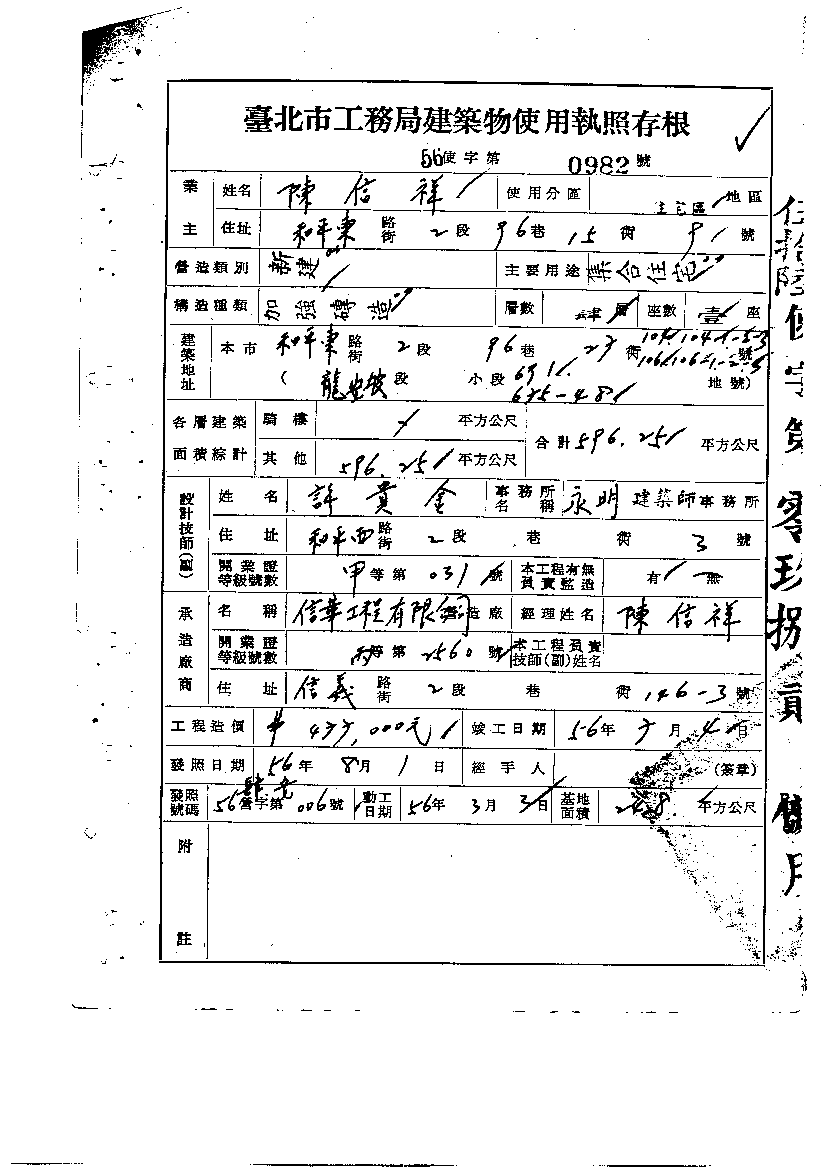 臺北市工務局建築物使用執照存根
56使字第 0982 號
業主 姓名 陳信祥 使用分區 住宅區 地區
住址 和平東 路街 2段 96巷 15衖 91號
營造類別 新建 主要用途 集合住宅
構造種類 加強磚造 層數 肆層 座數 壹座
建築地址 本市 和平東 路街 2段 96巷 衖 號
( 段 小段 地號)
各層建築面積綜計 騎樓 平方公尺 合計 596.25 平方公尺
其他 596.25 平方公尺
設計技師(副) 姓名 許貴金 事務所名稱 永明建築師事務所
住址 和平西 路街 2段 巷 衖 3號
開業證等級號數 甲等第 031號 本工程有無負責監造 有 無
承造廠商 名稱 信華工程有限公司 營造廠 經理姓名 陳信祥
開業證等級號數 丙等第 2560號 本工程負責技師(副)姓名
住址 信義 路街 2段 巷 衖 146-3號
工程造價 000元 竣工日期 56年 月 4日
發照日期 56年 8月 1日 經手人 (簽章)
發照號碼 56營字第 006號 動工日期 56年 3月 3日 基地面積 平方公尺
附註
伍拾陸使字第零玖捌貳 使用